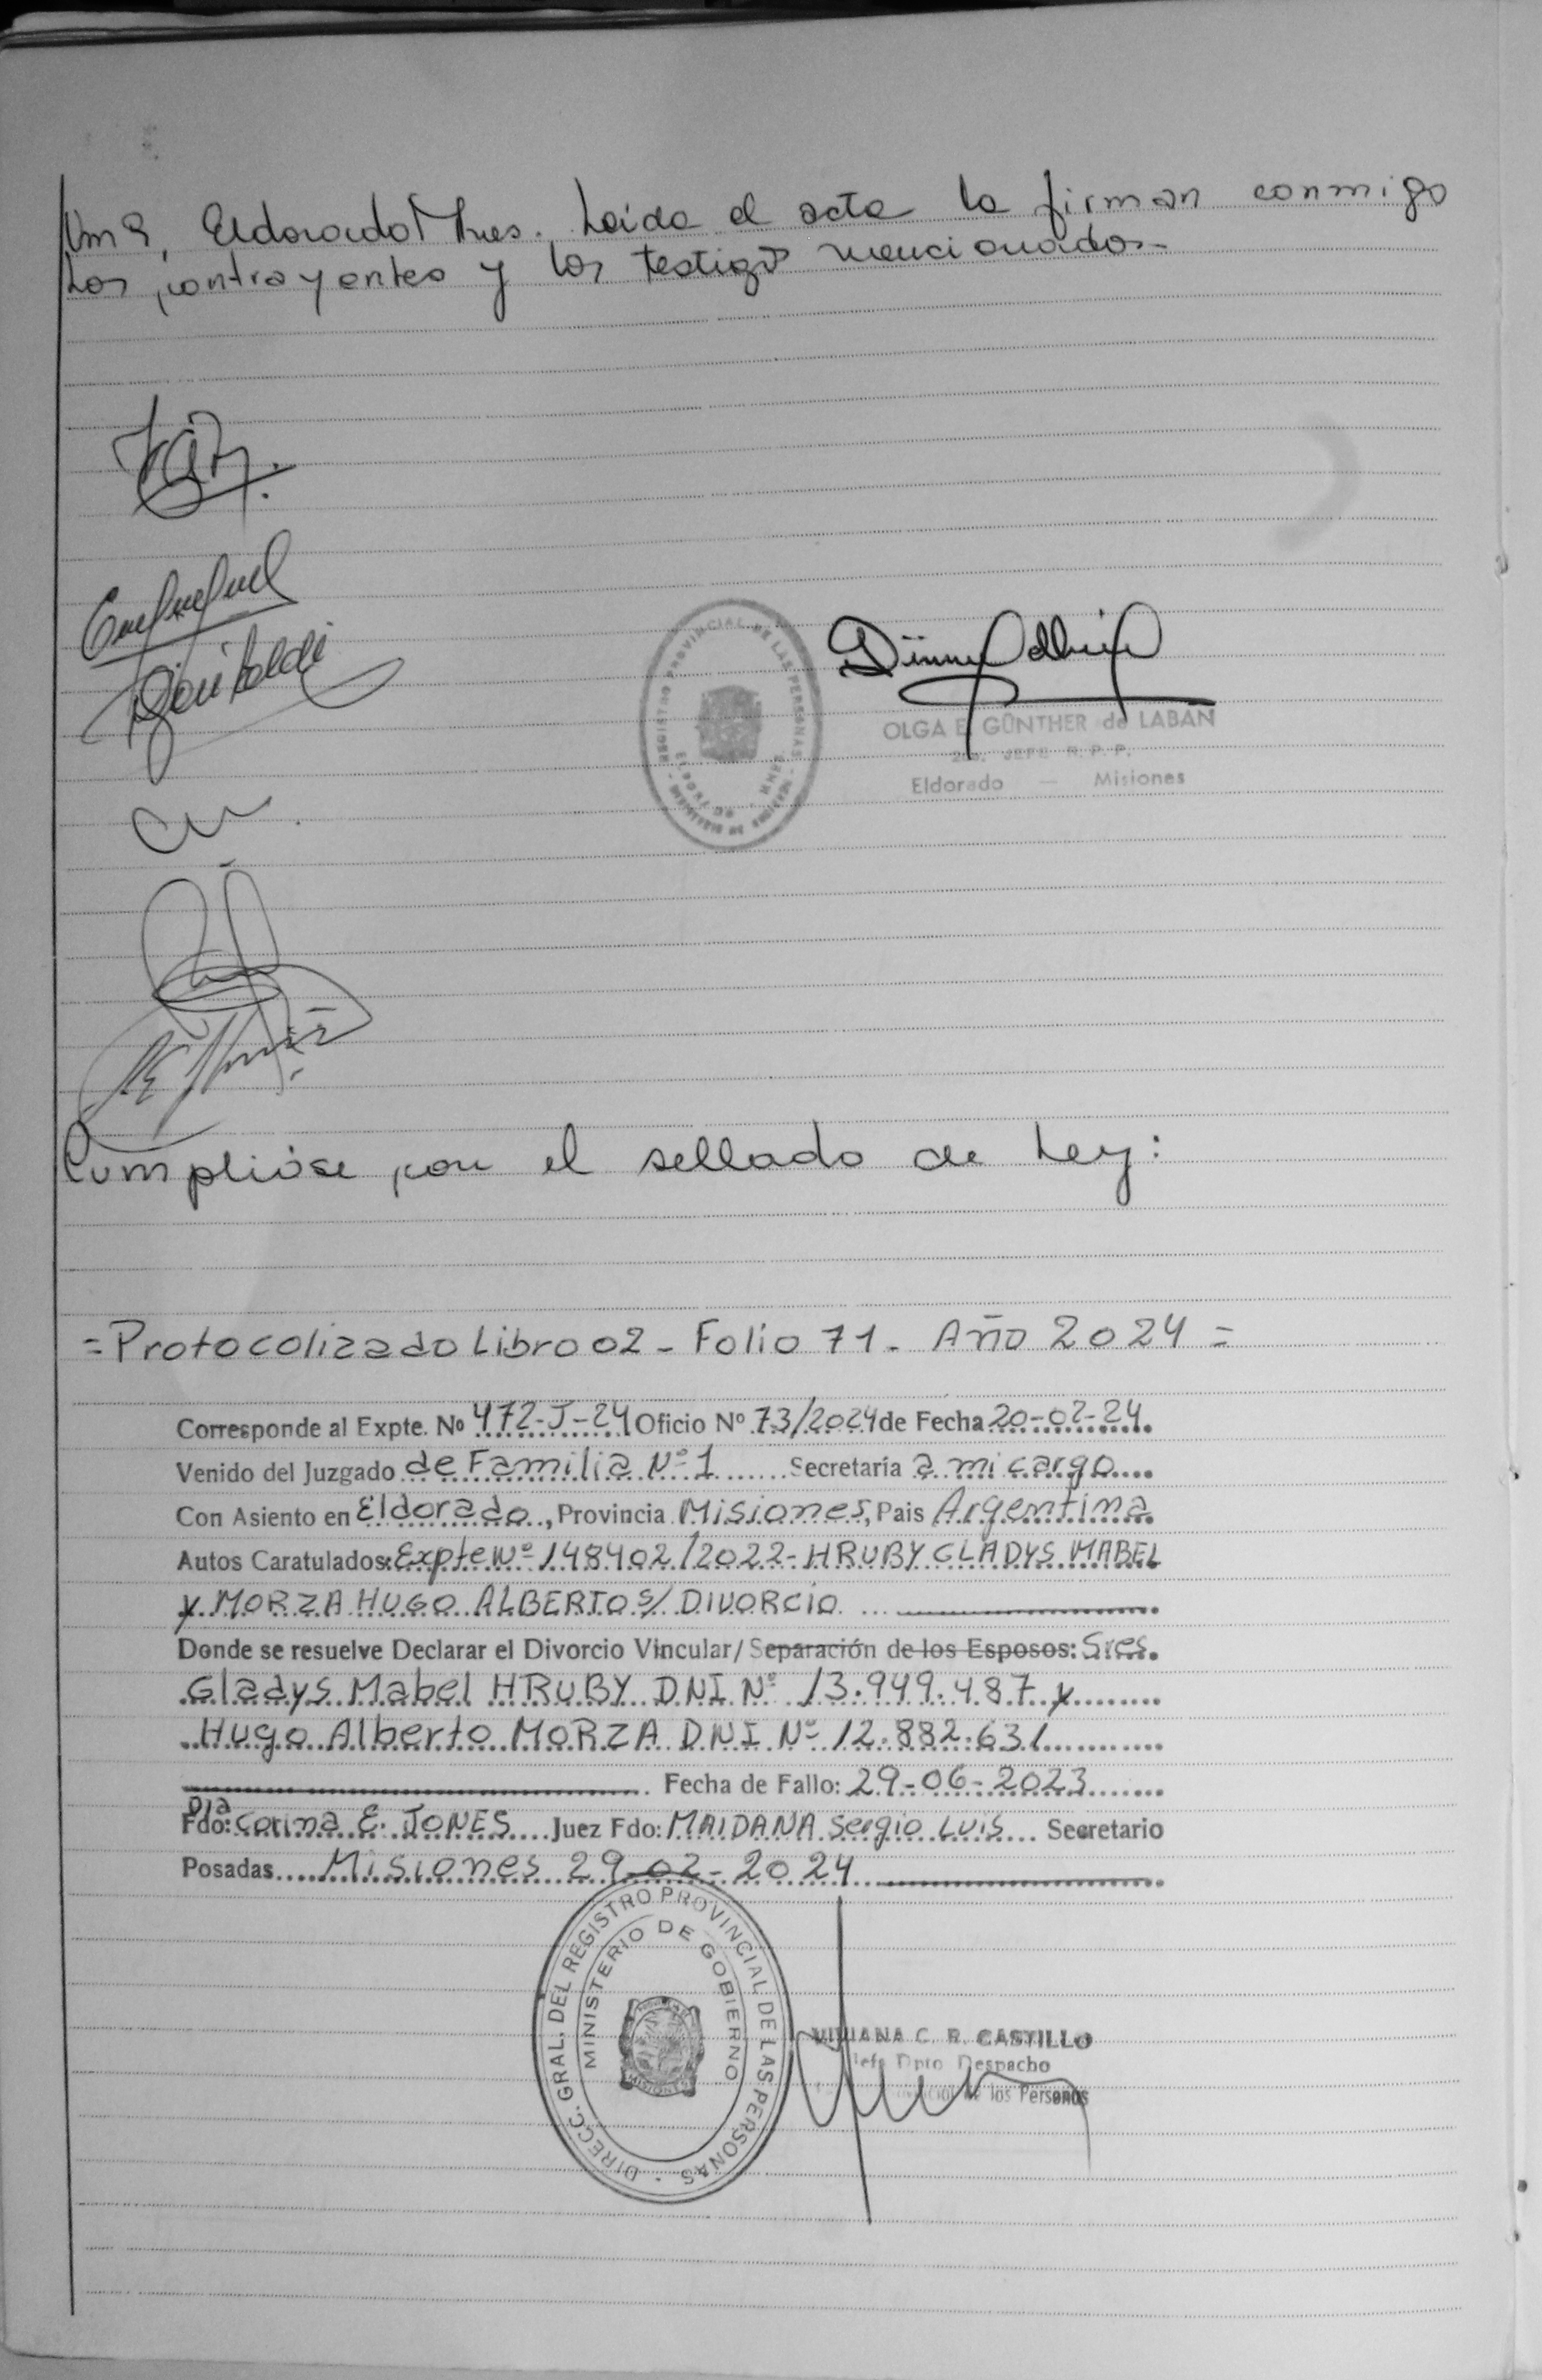 Eldorado Mnes. Leida el acta la firman conmigo
los contrayentes y los testigos mencionados-
REGISTRO PROVINCIAL DE LAS PERSONAS
OLGA E. GÜNTHER de LABAN
JEFE R. P. P.
Eldorado — Misiones
Cumplióse con el sellado de Ley:
=Protocolizado Libro 02 - Folio 71 - Año 2024 =
Corresponde al Expte. No 472-J-24 Oficio Nº 73/2024 de Fecha 20-02-24
Venido del Juzgado de Familia Nº 1 Secretaría a mi cargo
Con Asiento en Eldorado, Provincia Misiones, Pais Argentina
Autos Caratulados: Expte Nº 148402/2022- HRUBY GLADYS MABEL
y MORZA HUGO ALBERTO s/ DIVORCIO
Donde se resuelve Declarar el Divorcio Vincular/ Separación de los Esposos: Sres.
Gladys Mabel HRUBY DNI Nº 13.949.487 y
Hugo Alberto MORZA DNI Nº 12.882.631
Fecha de Fallo: 29-06-2023
Dra
Fdo: Corina E. JONES Juez Fdo: MAIDANA Sergio Luis Secretario
Posadas Misiones 29-02-2024
DIRECC. GRAL. DEL REGISTRO PROVINCIAL DE LAS PERSONAS
MINISTERIO DE GOBIERNO
MISIONES
VIVIANA C. R. CASTILLO
Jefe Dpto Despacho
de las Personas